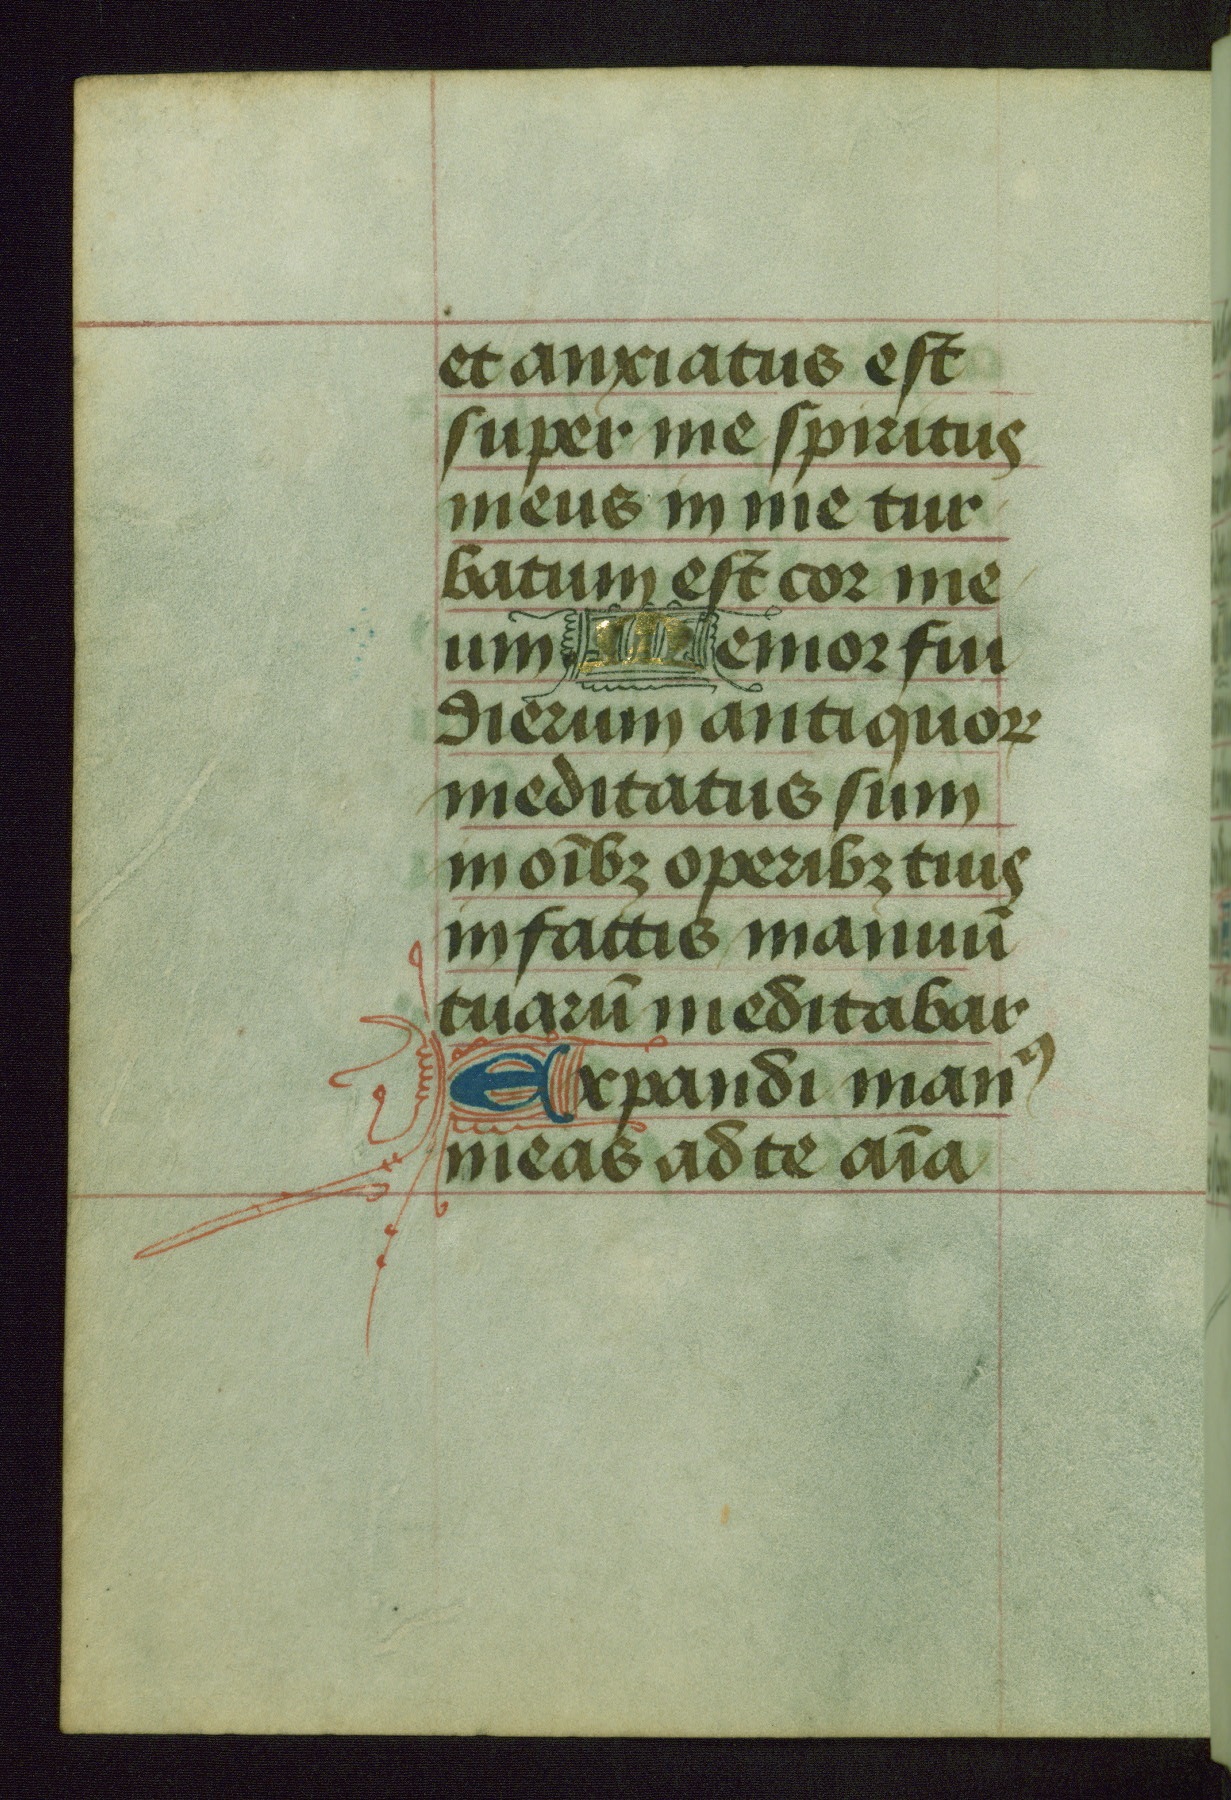 et anxiatus est
super me spiritus
meus in me tur
batum est cor me
um Memor fui
dierum antiquoꝝ
meditatus sum
in oībꝫ operibꝫ tuis
in factis manuū
tuarū meditabar
Expandi manꝰ
meas ad te aīa